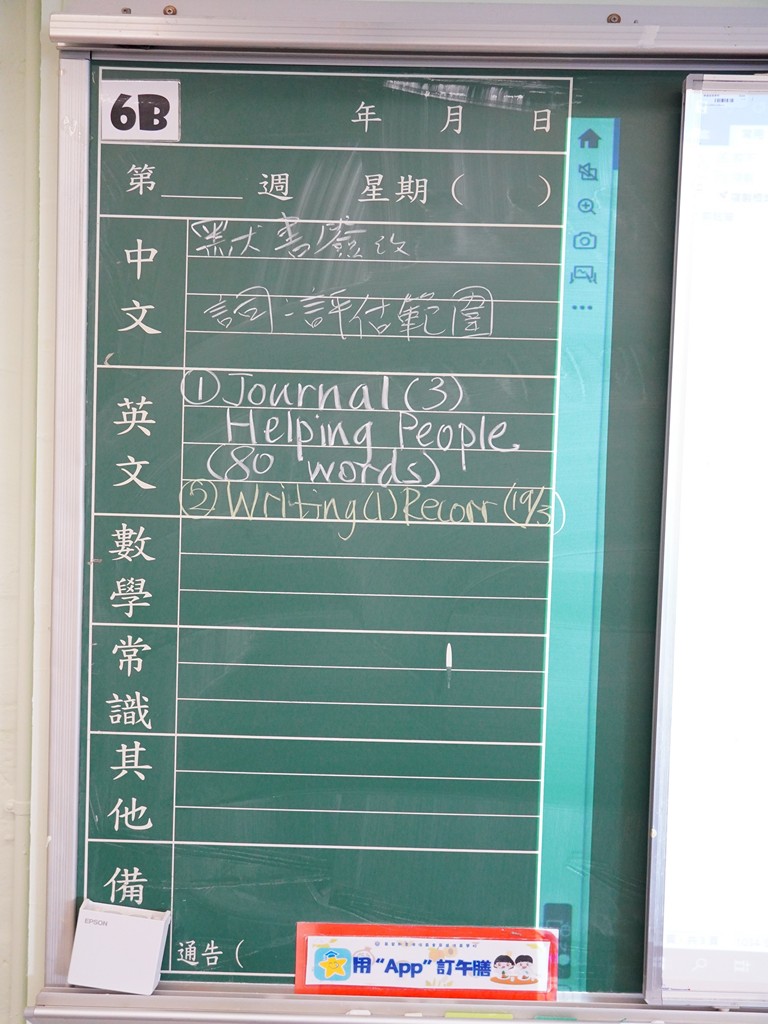 6B
年 月 日
第____週 星期( )
中文
默書簽改
詞:評估範圍
英文
① Journal (3)
Helping People
(80 words)
② Writing(1) Recorr (19/3)
數學
常識
其他
備
EPSON
通告(
用"App"訂午膳